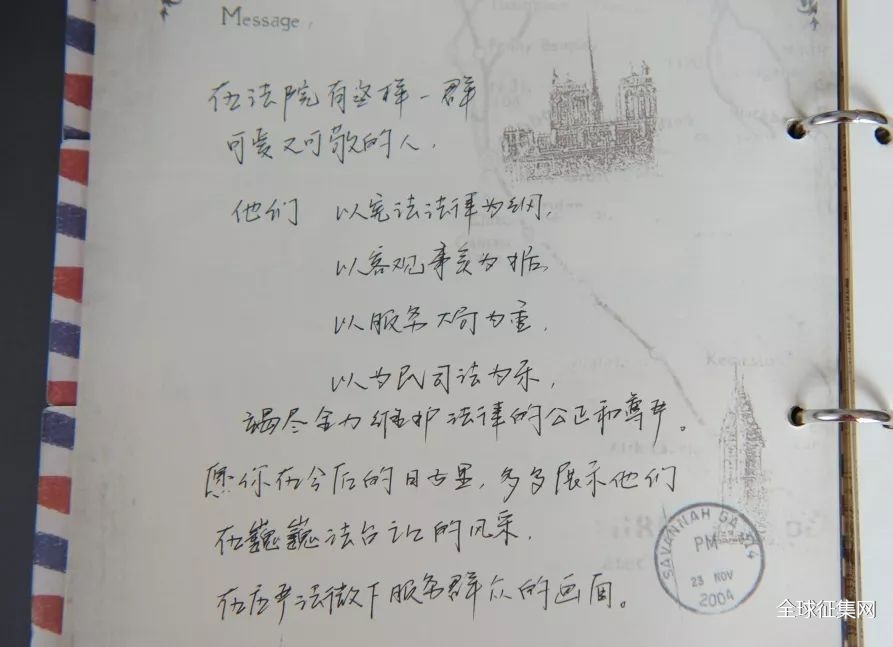 Message,
在法院有这样一群
可爱又可敬的人,
他们 以宪法法律为纲,
以客观事实为据,
以服务大局为重,
以为民司法为乐,
竭尽全力维护法律的公正和尊严。
愿你在今后的日子里,多多展示他们
在巍巍法台之上的风采,
在庄严法徽下服务群众的画面。
SAVANNAH GA 314
PM
23 NOV
2004
全球征集网